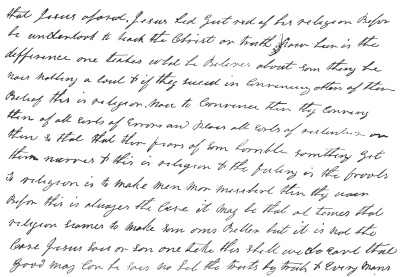 that Jesus a Jesus had Got rid of his religion Before
he undertook to teach the Christ or truth now her is the
difference one teaches what he Believes about som thing he
nows nothing a bout & if they suceed in Convincing others of ther
Belief this is religion. Now to Convince then they Convince
them of all sorts of Errors and all sorts of on
them so that that ther from som horrible something Got
them to this is religion & the feeling is the
is religion is to make men mor miserable then they
Before this is always the Case it may be that at times that
religion seames to make som ones Better but it is not the
Case Jesus or son one this Shall we do evil that
good may Com he sais no let the truth by truth & Every Mans